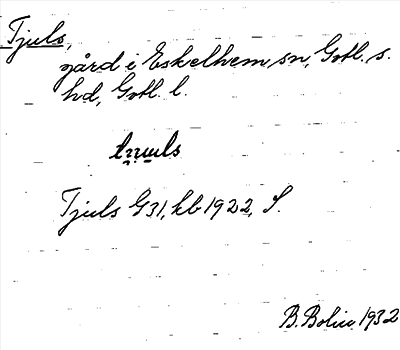 Tjuls,
gård i Eskelhem sn, Gotl. s.
hd, Gotl. l.
Tjuls G31, kb 1922, S.
B. Bolin 1932